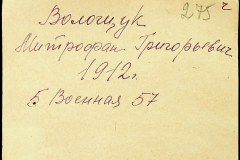 275 ч
Вологщук
Митрофан Григорьевич
1912г.
5 Военная 57